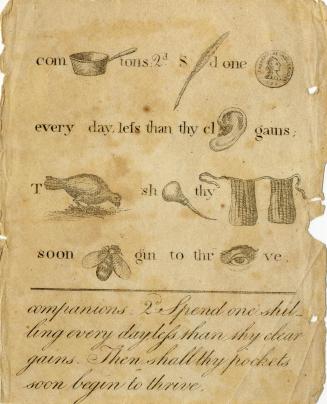 com tons. 2d S d one
every day lefs than thy cl gains;
T sh thy
soon gin to thr ve.
companions. 2d Spend one shil-
ling every day lefs than thy clear
gains. Then shall thy pockets
soon begin to thrive.